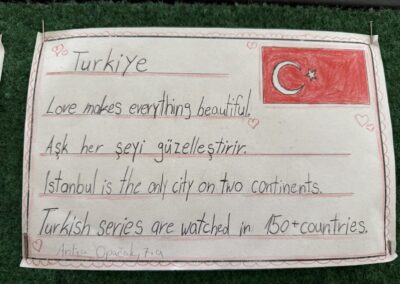 Turkiye
Love makes everything beautiful.
Aşk her şeyi güzelleştirir.
Istanbul is the only city on two continents.
Turkish series are watched in 150+countries.
7.a